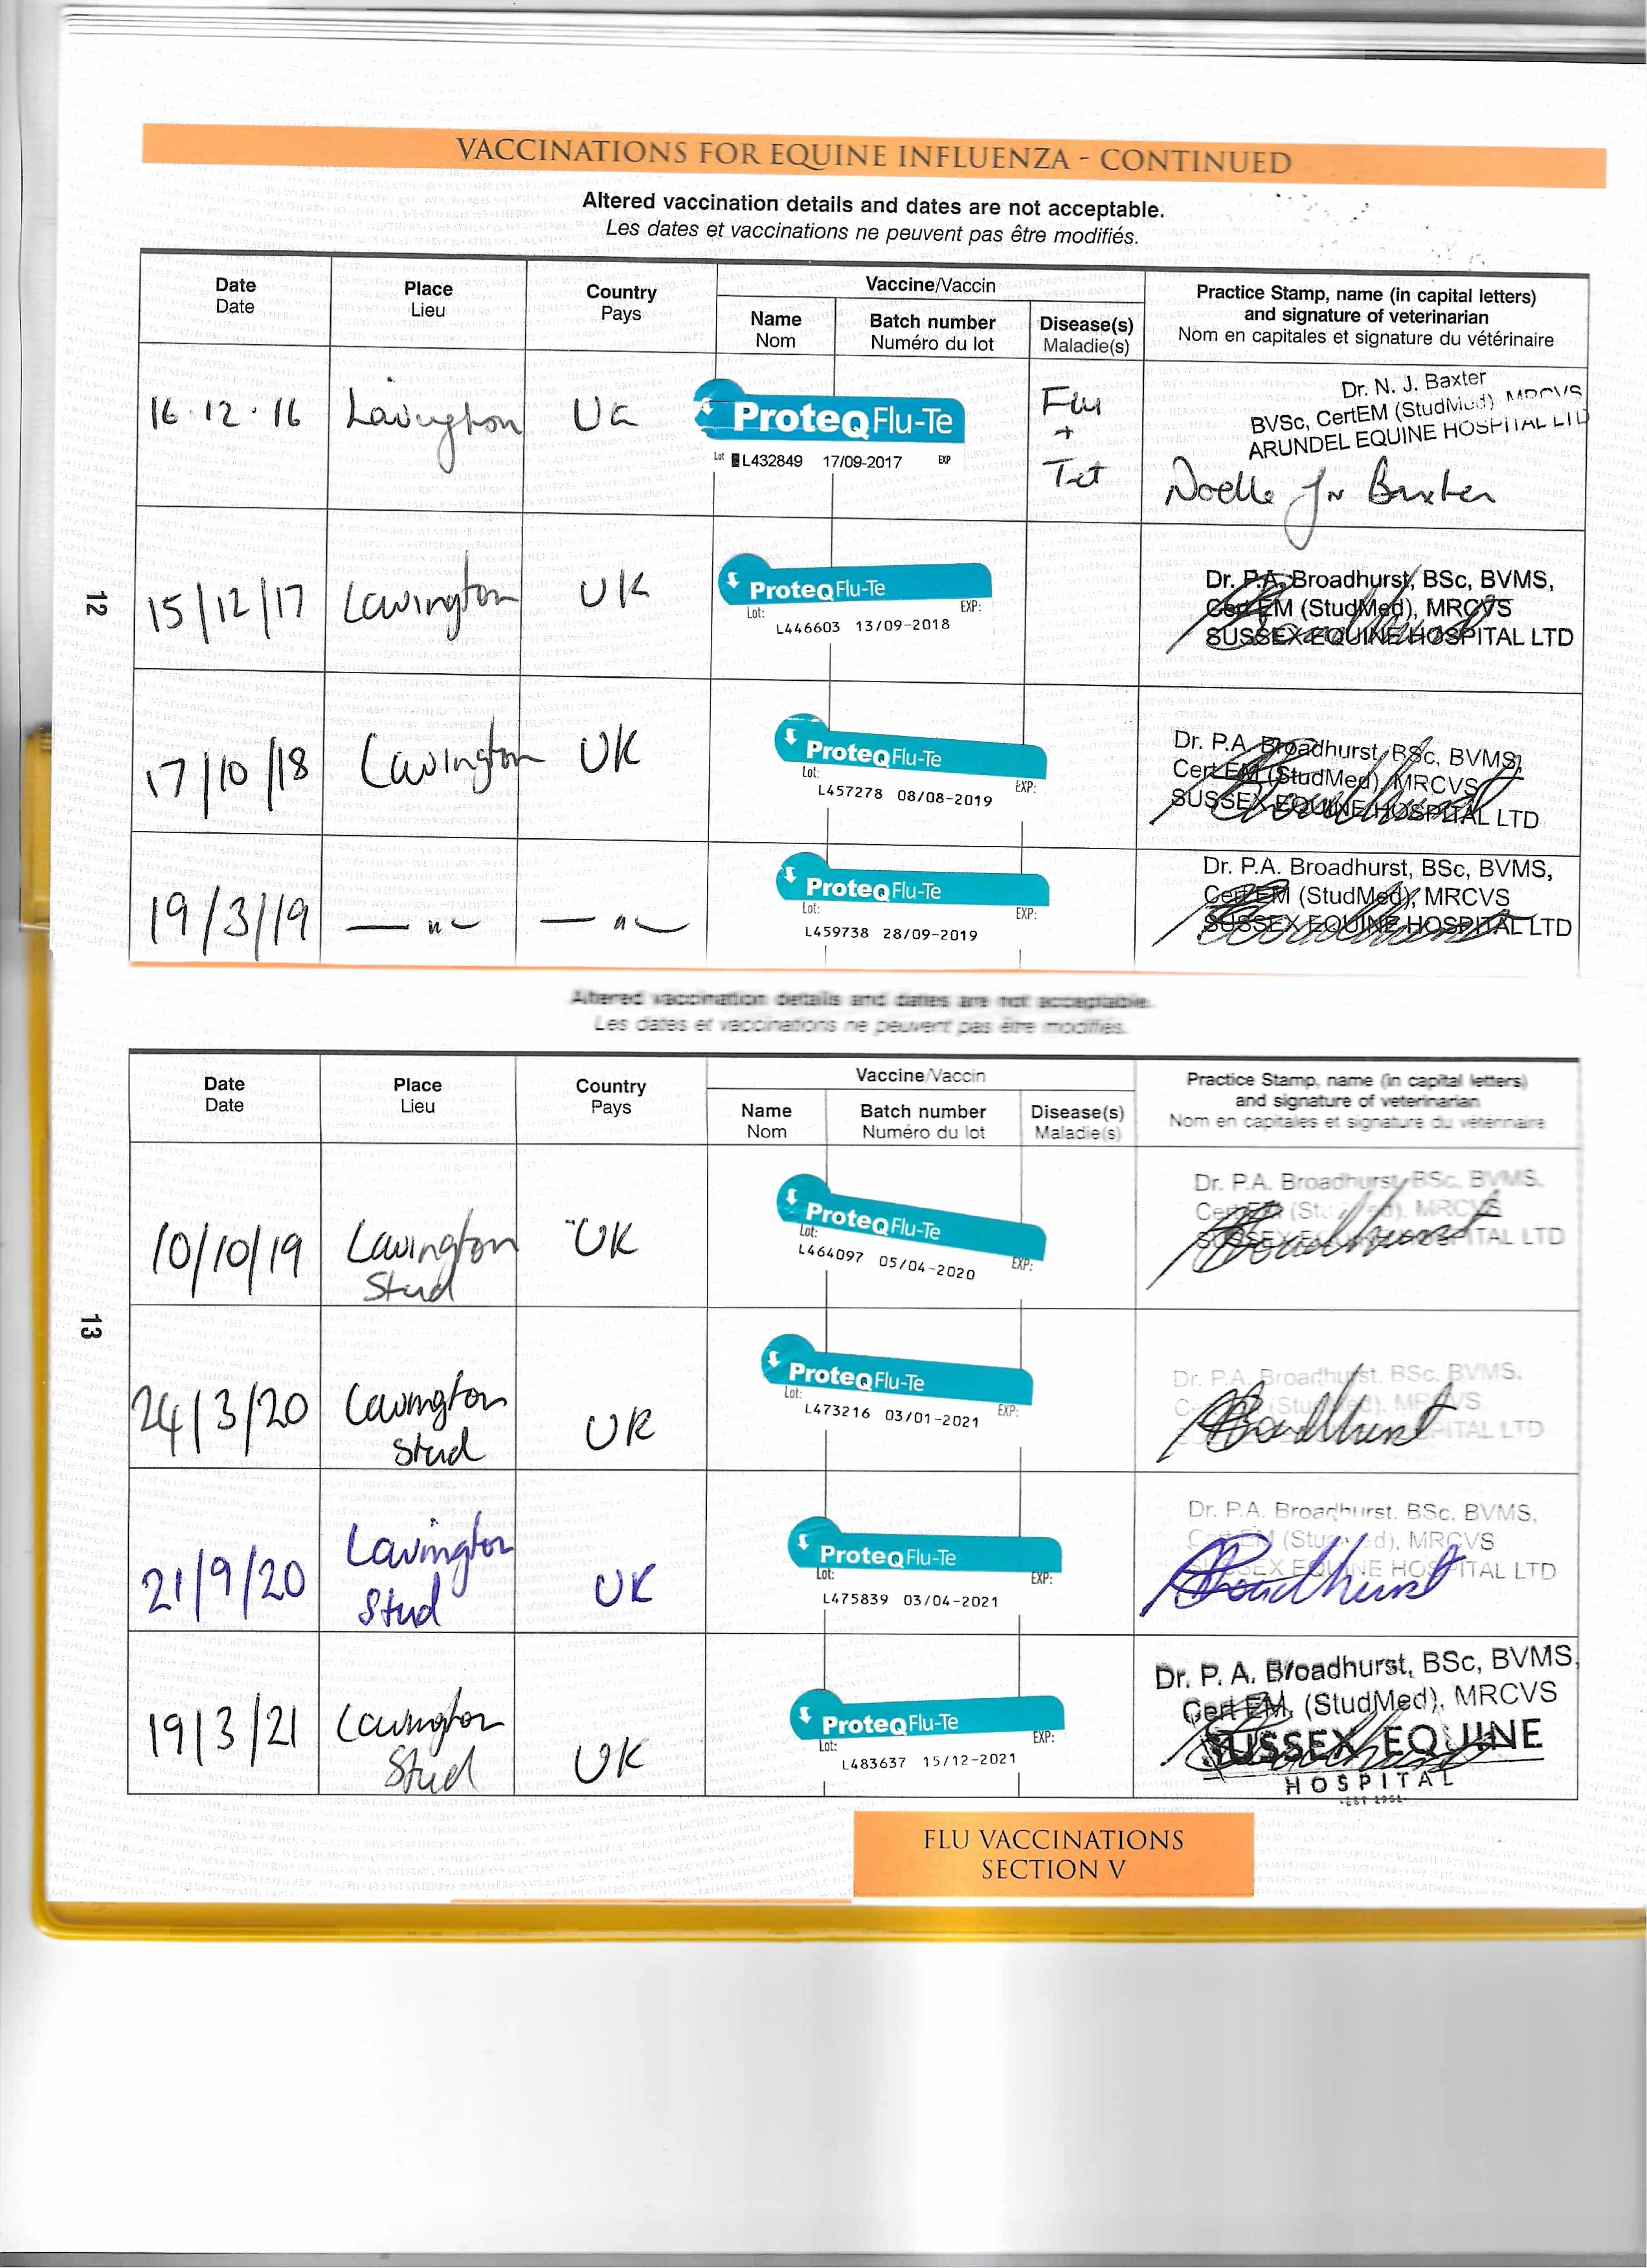 VACCINATIONS FOR EQUINE INFLUENZA - CONTINUED
Altered vaccination details and dates are not acceptable.
Les dates et vaccinations ne peuvent pas être modifiés.
Date Place Country Vaccine/Vaccin Practice Stamp, name (in capital letters)
Date Lieu Pays and signature of veterinarian
Name Batch number Disease(s) Nom en capitales et signature du vétérinaire
Nom Numéro du lot Maladie(s)
16.12.16 Lavington UK ProteqFlu-Te Flu + Tet
Lot L432849 17/09-2017 EXP
Dr. N. J. Baxter
BVSc, CertEM (StudMed) MRCVS
ARUNDEL EQUINE HOSPITAL LTD
Noelle Jn Baxter
12
15/12/17 Lavington UK ProteqFlu-Te
Lot: EXP:
L446603 13/09-2018
Dr. P.A. Broadhurst, BSc, BVMS,
Cert EM (StudMed), MRCVS
SUSSEX EQUINE HOSPITAL LTD
17/10/18 Lavington UK ProteqFlu-Te
Lot: EXP:
L457278 08/08-2019
Dr. P.A. Broadhurst, BSc, BVMS,
Cert EM (StudMed), MRCVS
SUSSEX EQUINE HOSPITAL LTD
19/3/19 — " — — " — ProteqFlu-Te
Lot: EXP:
L459738 28/09-2019
Dr. P.A. Broadhurst, BSc, BVMS,
Cert EM (StudMed), MRCVS
SUSSEX EQUINE HOSPITAL LTD
Altered vaccination details and dates are not acceptable.
Les dates et vaccinations ne peuvent pas être modifiés.
Date Place Country Vaccine/Vaccin Practice Stamp, name (in capital letters)
Date Lieu Pays and signature of veterinarian
Name Batch number Disease(s) Nom en capitales et signature du vétérinaire
Nom Numéro du lot Maladie(s)
10/10/19 Lavington Stud UK ProteqFlu-Te
Lot: EXP:
L464097 05/04-2020
Dr. P.A. Broadhurst, BSc, BVMS,
Cert EM (StudMed), MRCVS
SUSSEX EQUINE HOSPITAL LTD
Broadhurst
13
24/3/20 Lavington Stud UK ProteqFlu-Te
Lot: EXP:
L473216 03/01-2021
Dr. P.A. Broadhurst, BSc, BVMS,
Cert EM (StudMed), MRCVS
HOSPITAL LTD
Broadhurst
21/9/20 Lavington Stud UK ProteqFlu-Te
Lot: EXP:
L475839 03/04-2021
Dr. P.A. Broadhurst, BSc, BVMS,
Cert EM (StudMed), MRCVS
SUSSEX EQUINE HOSPITAL LTD
Broadhurst
19/3/21 Lavington Stud UK ProteqFlu-Te
Lot: EXP:
L483637 15/12-2021
Dr. P. A. Broadhurst, BSc, BVMS,
Cert EM, (StudMed), MRCVS
SUSSEX EQUINE
HOSPITAL
FLU VACCINATIONS
SECTION V